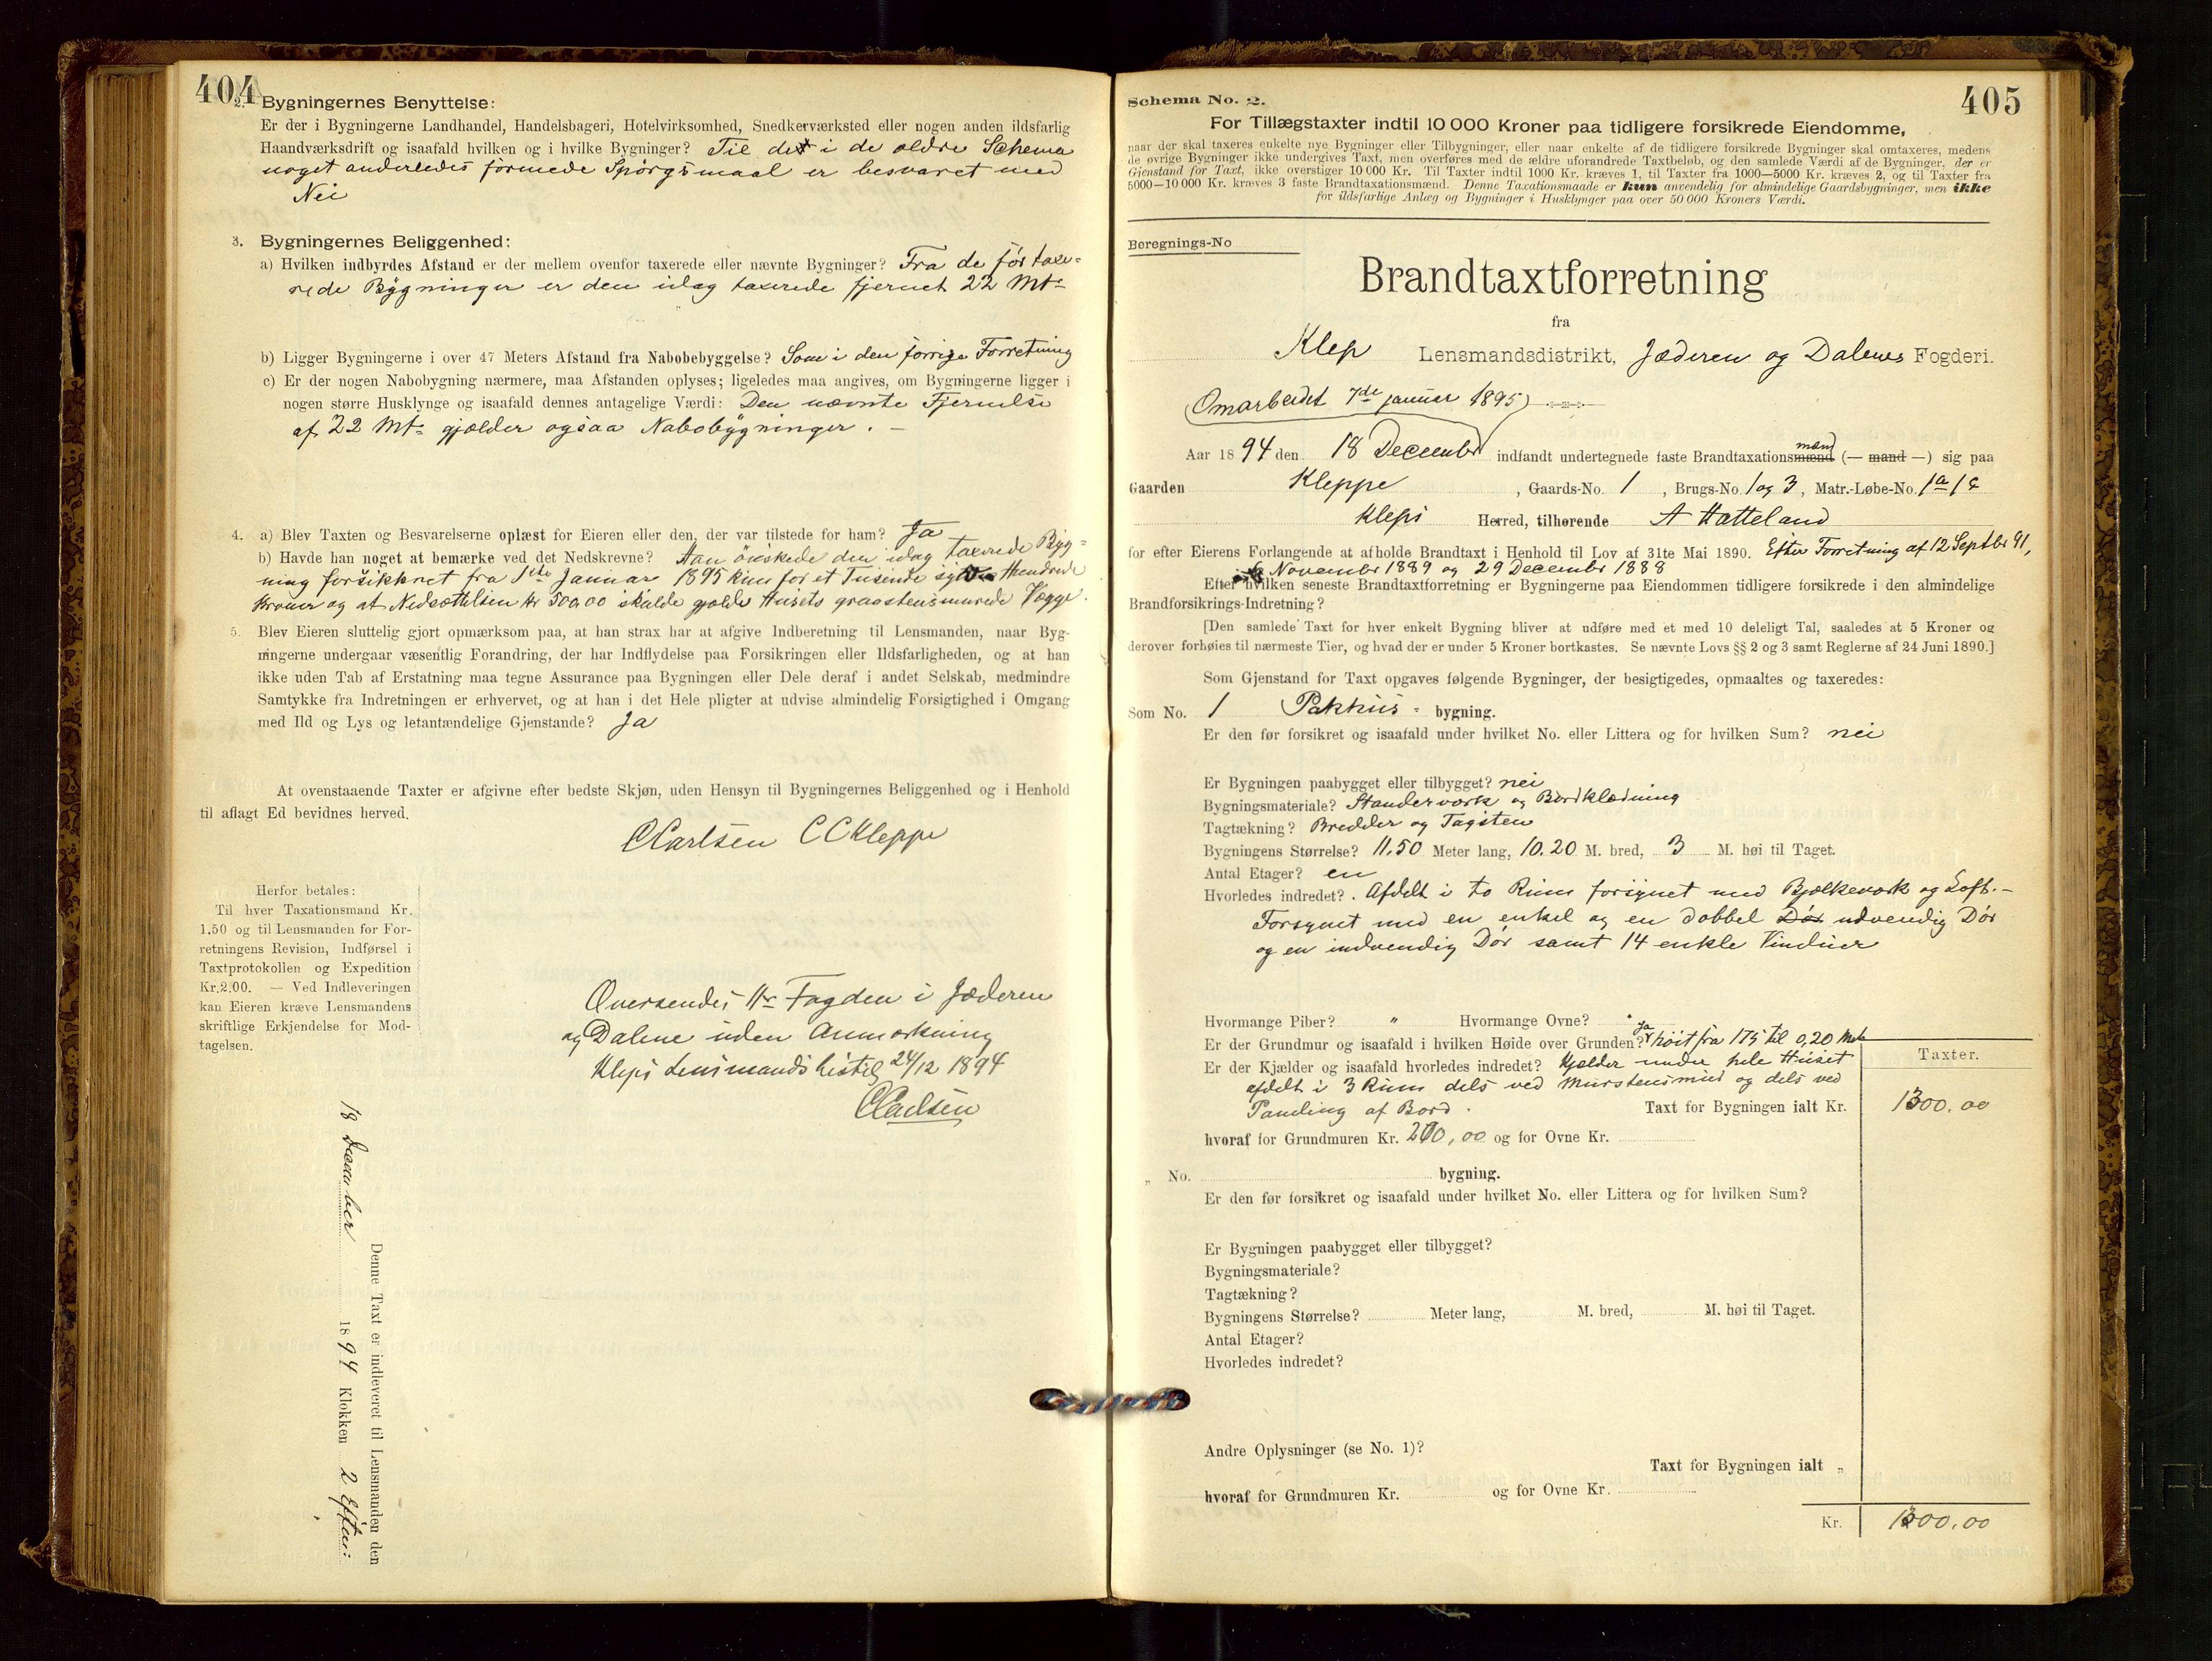 404
2. Bygningernes Benyttelse:
Er der i Bygningerne Landhandel, Handelsbageri, Hotelvirksomhed, Snedkerværksted eller nogen anden ildsfarlig
Haandværksdrift og isaafald hvilken og i hvilke Bygninger? Til det i de ældre Schema
noget anderledes formede Spörgsmaal er besvaret med
Nei
3. Bygningernes Beliggenhed:
a) Hvilken indbyrdes Afstand er der mellem ovenfor taxerede eller nævnte Bygninger? Fra de för taxe-
rede Bygninger er den idag taxerede fjernet 22 Mtr
b) Ligger Bygningerne i over 47 Meters Afstand fra Nabobebyggelse? Som i den forrige Forretning
c) Er der nogen Nabobygning nærmere, maa Afstanden oplyses; ligeledes maa angives, om Bygningerne ligger i
nogen større Husklynge og isaafald dennes antagelige Værdi: Den nævnte Fjernelse
af 22 Mtr gjælder ogsaa Nabobygninger. —
4. a) Blev Taxten og Besvarelserne oplæst for Eieren eller den, der var tilstede for ham? Ja
b) Havde han noget at bemærke ved det Nedskrevne? Han önskede den idag taxerede Byg-
ning forsikkret fra 1ste Januar 1895 kun for et Tusende syv Hundrede
Kroner og at Nedsættelsen Kr 300,00 skulde gjælde Husets graastensmurede Vægge.
5. Blev Eieren sluttelig gjort opmærksom paa, at han strax har at afgive Indberetning til Lensmanden, naar Byg-
ningerne undergaar væsentlig Forandring, der har Indflydelse paa Forsikringen eller Ildsfarligheden, og at han
ikke uden Tab af Erstatning maa tegne Assurance paa Bygningen eller Dele deraf i andet Selskab, medmindre
Samtykke fra Indretningen er erhvervet, og at han i det Hele pligter at udvise almindelig Forsigtighed i Omgang
med Ild og Lys og letantændelige Gjenstande? Ja
At ovenstaaende Taxter er afgivne efter bedste Skjøn, uden Hensyn til Bygningernes Beliggenhed og i Henhold
til aflagt Ed bevidnes herved.
C Carlsen C C Kleppe
Herfor betales:
Til hver Taxationsmand Kr.
1.50 og til Lensmanden for For-
retningens Revision, Indførsel i
Taxtprotokollen og Expedition
Kr. 2.00. — Ved Indleveringen
kan Eieren kræve Lensmandens
skriftlige Erkjendelse for Mod-
tagelsen.
Oversendes Hr Fogden i Jæderen
og Dalene uden Anmærkning
Klep Lensmandsbestil 24/12 1894
C Carlsen
Denne Taxt er indleveret til Lensmanden den
18 December 1894 Klokken 2 Efterm:
405
Schema No. 2.
For Tillægstaxter indtil 10 000 Kroner paa tidligere forsikrede Eiendomme,
naar der skal taxeres enkelte nye Bygninger eller Tilbygninger, eller naar enkelte af de tidligere forsikrede Bygninger skal omtaxeres, medens
de øvrige Bygninger ikke undergives Taxt, men overføres med de ældre uforandrede Taxtbeløb, og den samlede Værdi af de Bygninger, der er
Gjenstand for Taxt, ikke overstiger 10 000 Kr. Til Taxter indtil 1000 Kr. kræves 1, til Taxter fra 1000—5000 Kr. kræves 2, og til Taxter fra
5000—10 000 Kr. kræves 3 faste Brandtaxationsmænd. Denne Taxationsmaade er kun anvendelig for almindelige Gaardsbygninger, men ikke
for ildsfarlige Anlæg og Bygninger i Husklynger paa over 50 000 Kroners Værdi.
Beregnings-No
Brandtaxtforretning
fra
Klep Lensmandsdistrikt, Jæderen og Dalenes Fogderi.
(Omarbeidet 7de januar 1895)
Aar 1894 den 18 December indfandt undertegnede faste Brandtaxationsmænd mænd (— mand —) sig paa
Gaarden Kleppe, Gaards-No. 1, Brugs-No. 1 og 3, Matr.-Løbe-No. 1a 1c
Klep Herred, tilhørende A Hatteland
for efter Eierens Forlangende at afholde Brandtaxt i Henhold til Lov af 31te Mai 1890. Efter Forretning af 12 Septbr 91,
6 November 1889 og 29 December 1888
Efter hvilken seneste Brandtaxtforretning er Bygningerne paa Eiendommen tidligere forsikrede i den almindelige
Brandforsikrings-Indretning?
[Den samlede Taxt for hver enkelt Bygning bliver at udføre med et med 10 deleligt Tal, saaledes at 5 Kroner og
derover forhøies til nærmeste Tier, og hvad der er under 5 Kroner bortkastes. Se nævnte Lovs §§ 2 og 3 samt Reglerne af 24 Juni 1890.]
Som Gjenstand for Taxt opgaves følgende Bygninger, der besigtigedes, opmaaltes og taxeredes:
Som No. 1 Pakhus- bygning.
Er den før forsikret og isaafald under hvilket No. eller Littera og for hvilken Sum? nei
Er Bygningen paabygget eller tilbygget? nei
Bygningsmateriale? Standerværk og Bordklædning
Tagtækning? Bredder og Tagsten
Bygningens Størrelse? 11.50 Meter lang, 10.20 M. bred, 3 M. høi til Taget.
Antal Etager? en
Hvorledes indredet? Afdelt i to Rum forsynet med Bjelkeværk og Loft. —
Forsynet med en enkel og en dobbel Dör udvendig Dör
og en indvendig Dör samt 14 enkle Vinduer
Hvormange Piber? " Hvormange Ovne? "
Er der Grundmur og isaafald i hvilken Høide over Grunden? Ja höit fra 175 til 0,20 Mtr
Er der Kjælder og isaafald hvorledes indredet? Kjælder under hele Huset
afdelt i 3 Rum dels ved Murstensmur og dels ved
Paneling af Bord.
Taxter.
Taxt for Bygningen ialt Kr. 1300.00
hvoraf for Grundmuren Kr. 200,00 og for Ovne Kr.
„ No. bygning.
Er den før forsikret og isaafald under hvilket No. eller Littera og for hvilken Sum?
Er Bygningen paabygget eller tilbygget?
Bygningsmateriale?
Tagtækning?
Bygningens Størrelse? Meter lang, M. bred, M. høi til Taget.
Antal Etager?
Hvorledes indredet?
Andre Oplysninger (se No. 1)?
Taxt for Bygningen ialt „
hvoraf for Grundmuren Kr. og for Ovne Kr.
Kr. 1300.00